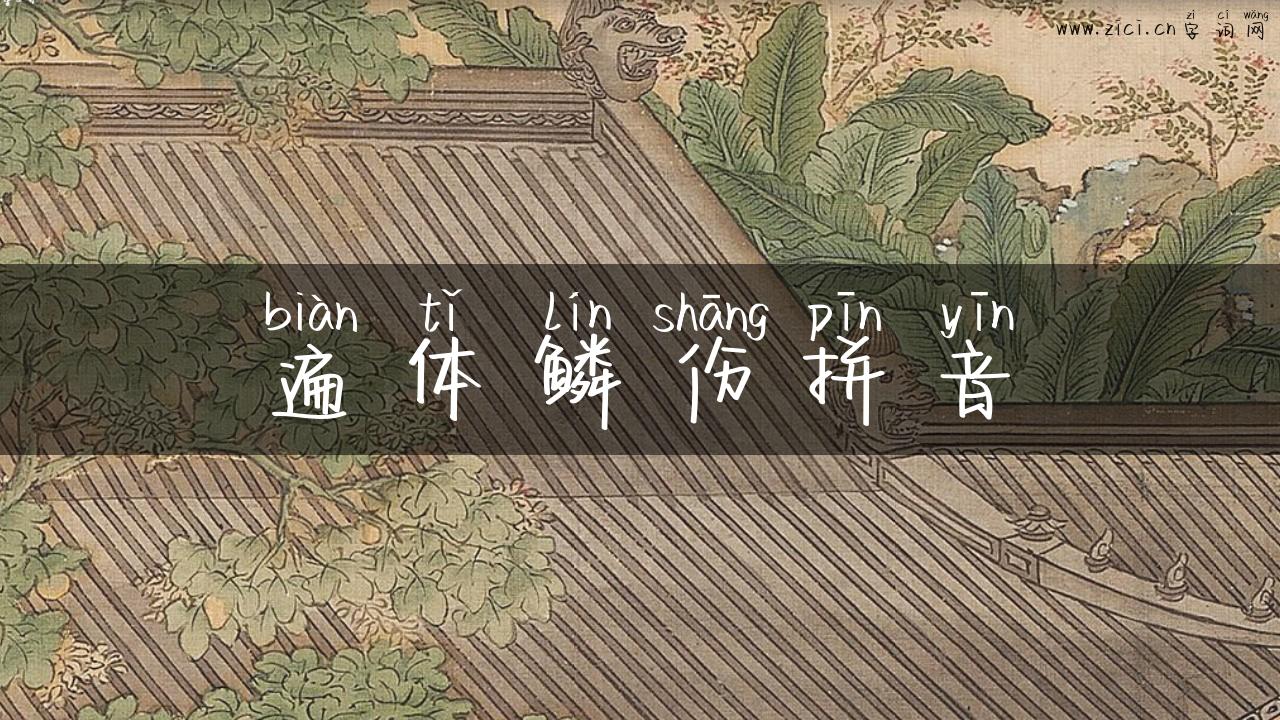 zì cí wǎng
www.zici.cn 字词网
biàn tǐ lín shāng pīn yīn
遍体鳞伤拼音